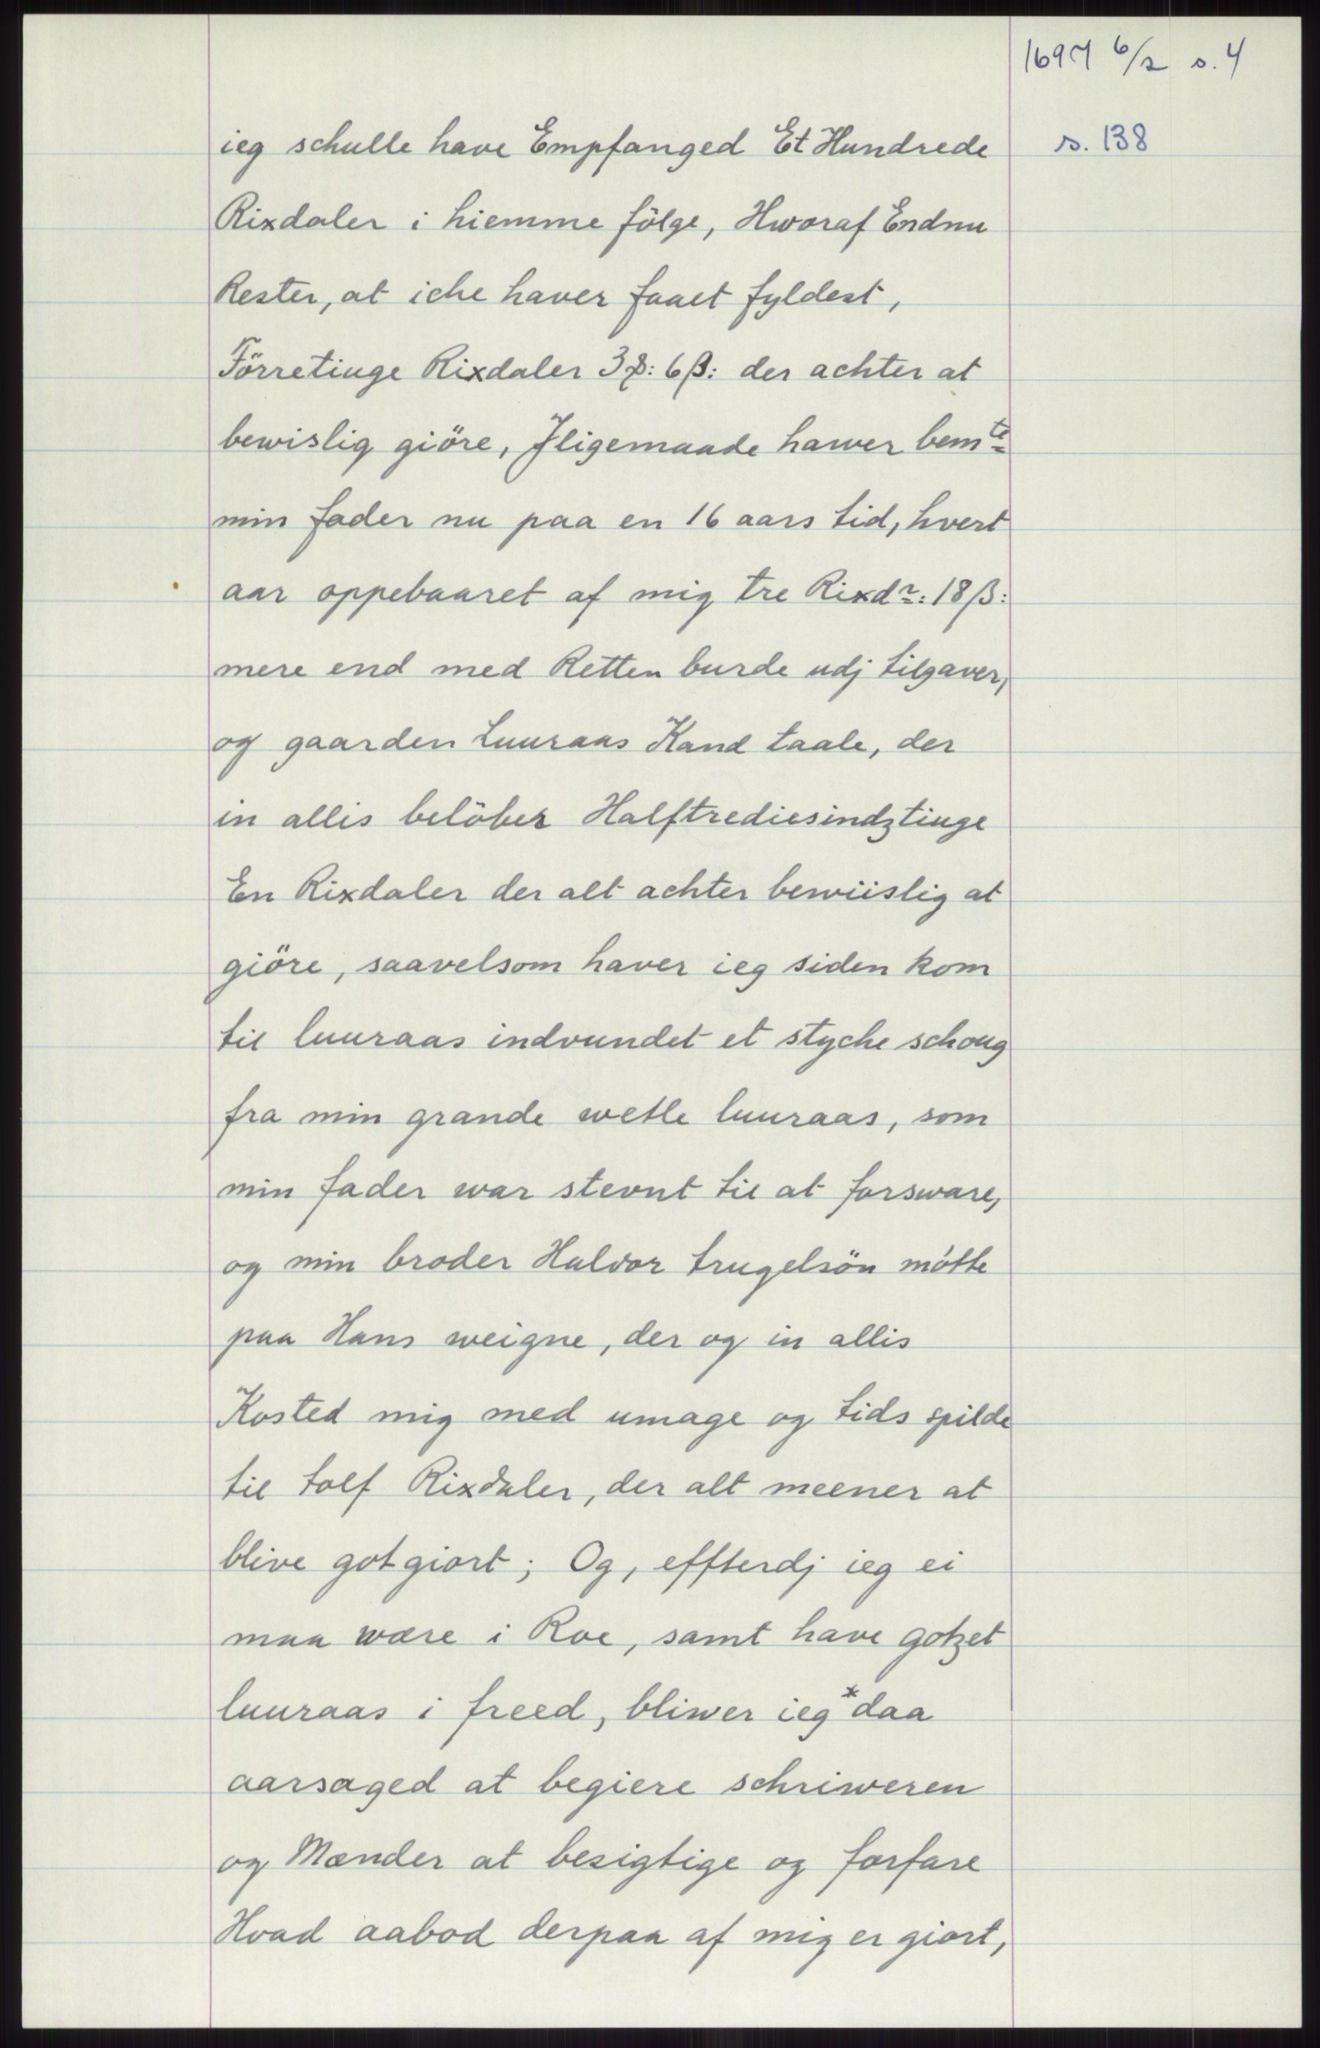 1697 6/2 s. 4
s. 138
ieg schulle have Empfanged Et Hundrede
Rixdaler i hiemme fölge, Hworaf Endnu
Rester, at iche haver faaet fyldest,
Förretiuge Rixdaler 3 ꝥ: 6 β: der achter at
bewislig giöre, Jligemaade hawer bem^te
min fader nu paa en 16 aars tid, hvert
aar oppebaaret af mig tre Rixd^r: 18 β:
mere end med Retten burde udj tilgaver,
og gaarden Luuraas Kand taale, der
in allis belöber Halftrediesindztiuge
En Rixdaler der alt achter bewiislig at
giöre, saavelsom haver ieg siden kom
til luuraas indvundet et styche schoug
fra min grande wetle luuraas, som
min fader war stevnt til at forsware,
og min broder Halvor trugelsön mötte
paa Hans weigne, der og in allis
Kosted mig med umage og tids spilde
til tolf Rixdaler, der alt meener at
blive gotgiort; Og, effterdj ieg ei
maa wære i Roe, samt have gotzet
luuraas i freed, bliwer ieg *daa
aarsaged at begiere schriweren
og Mænder at besigtige og forfare
Hvad aabod derpaa af mig er giort,